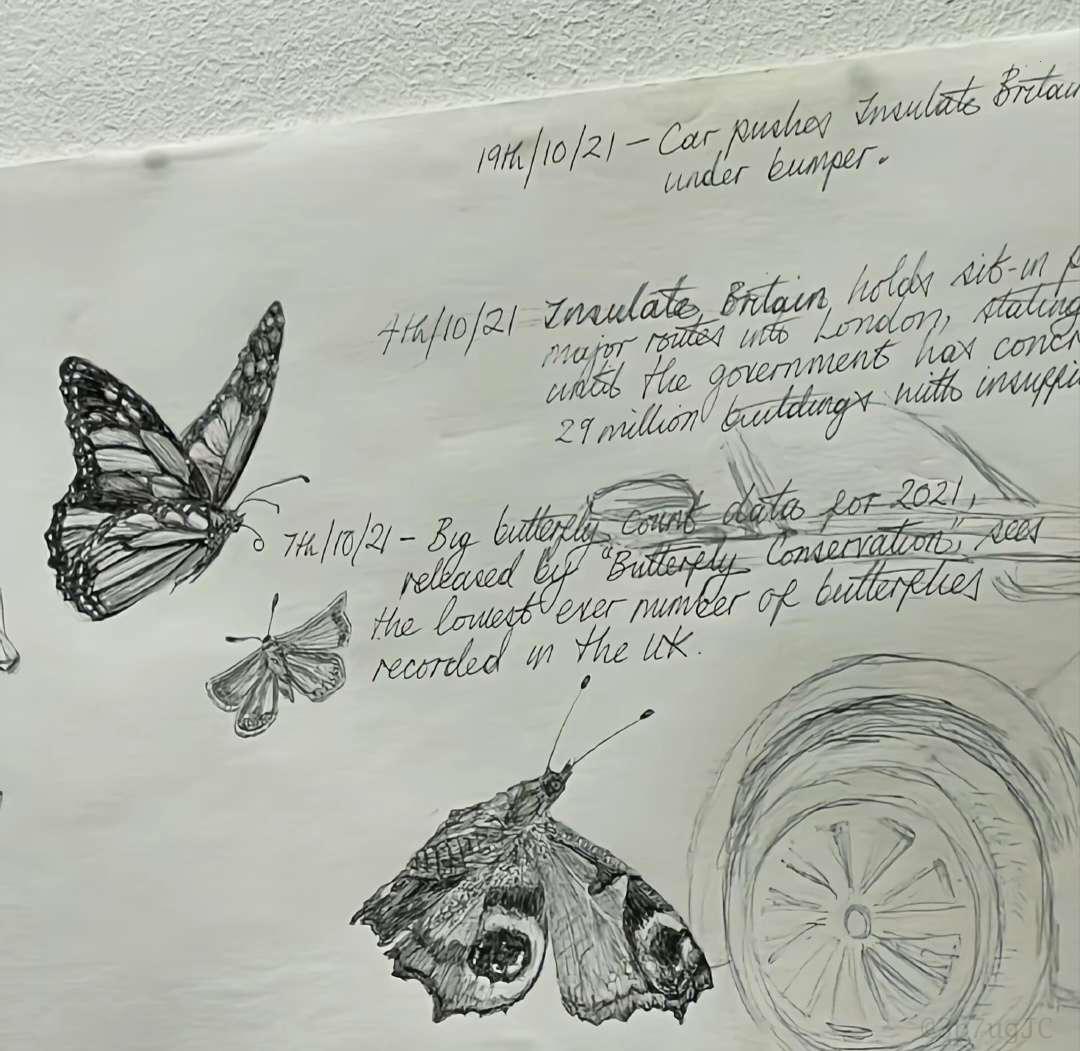 19th/10/21 - Car pushes Insulate Britain
under bumper.
4th/10/21 Insulate Britain holds sit-in
major routes into London, stating
until the government has
29 million buildings with
7th/10/21 - Big butterfly count data for 2021,
released by "Butterfly Conservation", sees
the lowest ever number of butterflies
recorded in the UK.